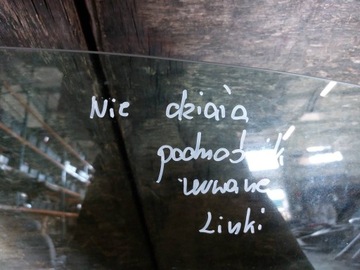 Nie działa
podnośnik
urwane
Linki